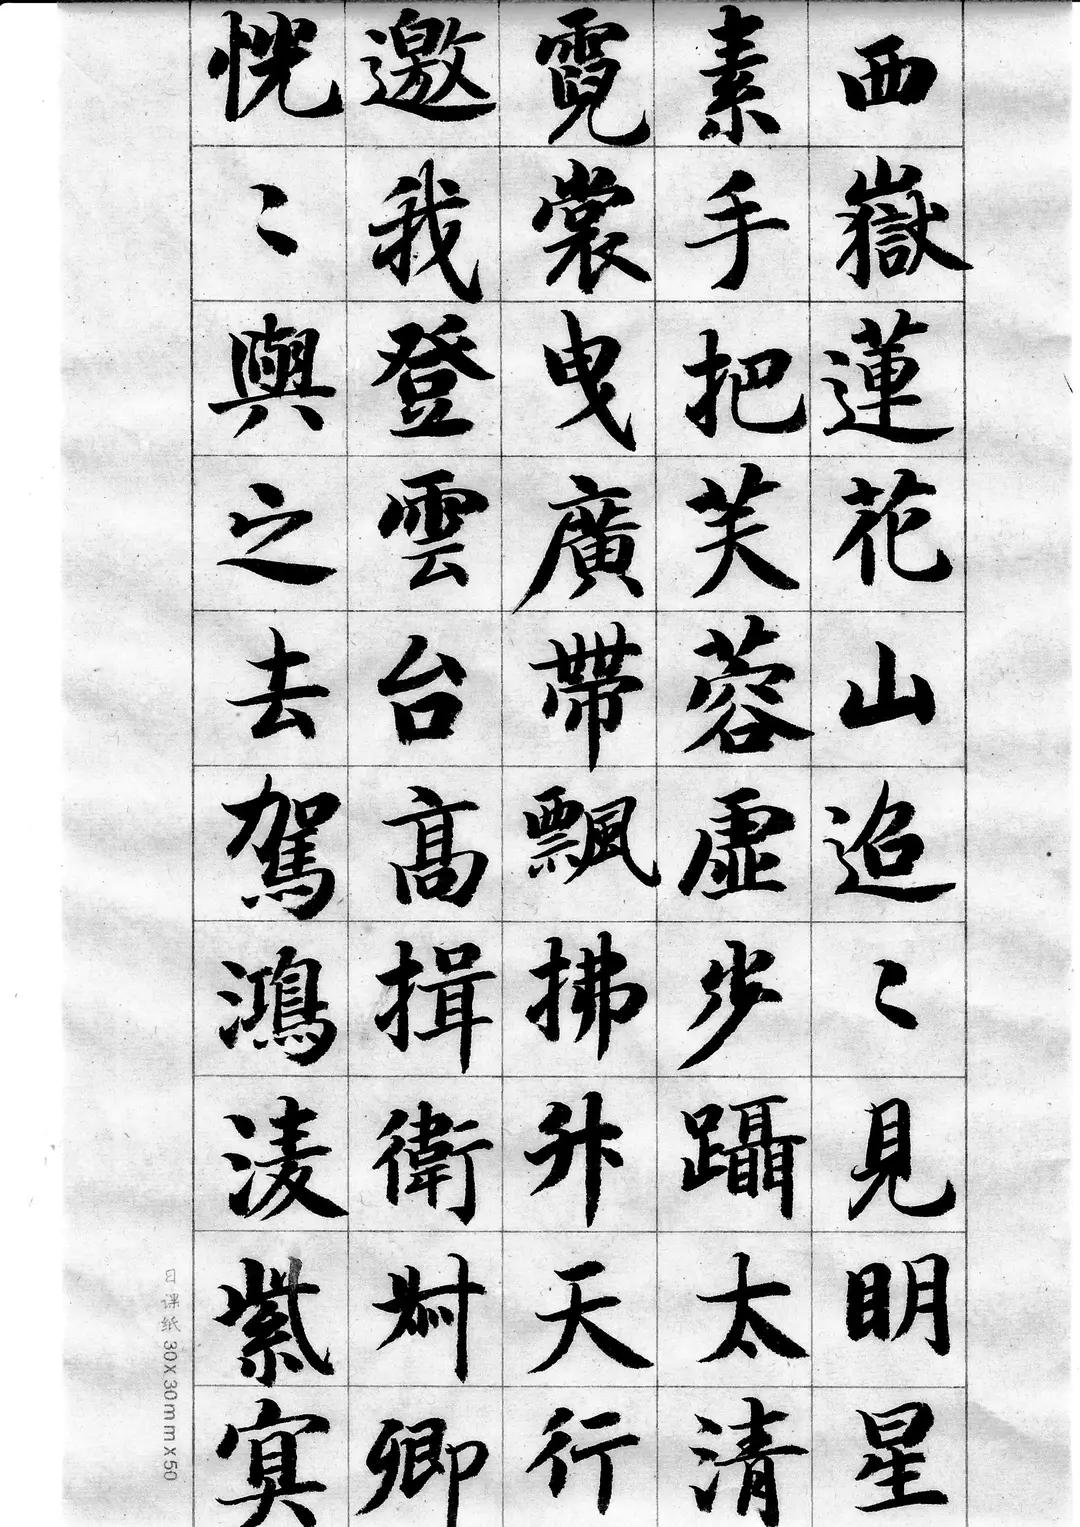 西嶽蓮花山迢〻見明星
素手把芙蓉虛步躡太清
霓裳曳廣帶飄拂升天行
邀我登雲台高揖衛叔卿
恍〻與之去駕鴻淩紫冥
日课纸 30x30mmx50